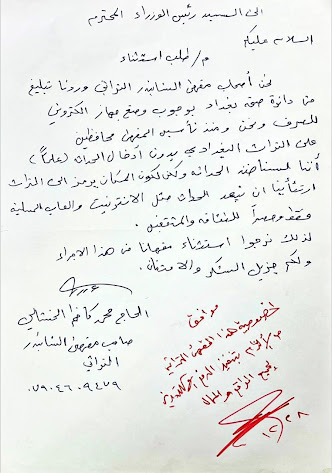 الى السيد رئيس الوزراء المحترم
السلام عليكم
م/ طلب استثناء
نحن أصحاب مقهى الشابندر التراثي وردنا تبليغ
من دائرة صحة بغداد بوجوب وضع جهاز الكتروني
للصرف ونحن ومنذ تأسيس المقهى محافظين
على التراث البغدادي بدون ادخال الحداثة (علماً)
أننا لسنا ضد الحداثة ولكن لكون المكان يرمز الى التراث
ارتئأينا ان نبعد الحداثة مثل الانترنيت والعاب المسلية
فقط وحصراً للثقافة والمثقفين.
لذلك نرجوا استثناء مقهانا من هذا الاجراء
ولكم جزيل الشكر والامتنان.
الحاج محمد كاظم الخشالي
صاحب مقهى الشابندر
التراثي
٠٧٩٠٤٦٠٩٤٧٩
موافق
لخصوصية هذا المقهى التراثية
١٢/٢٨